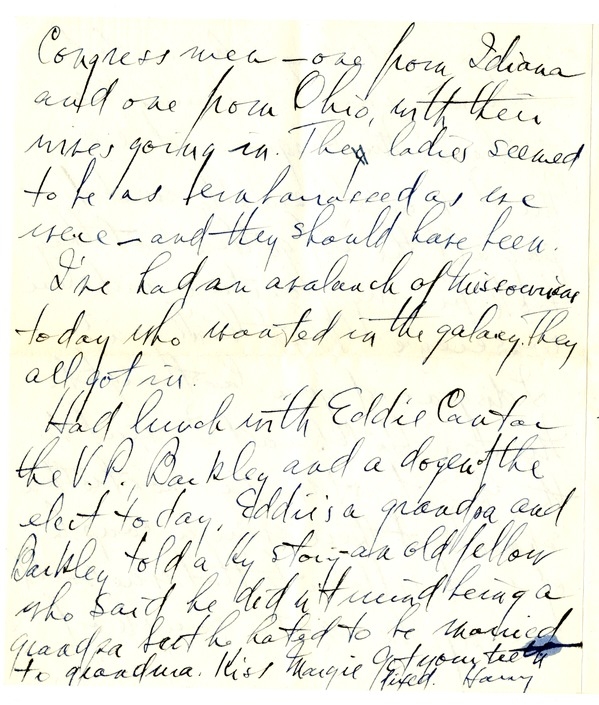 Congress men – one from Idiana
and one from Ohio, with their
wives going in. They ladies seemed
to be as embarrassed as we
were – and they should have been.
I've had an avalanch of Missourians
today who wanted in the galary. They
all got in.
Had lunch with Eddie Cantor
the V.P., Barkley and a dozen of the
elect today. Eddie is a grandpa and
Barkley told a Ky story – an old fellow
who said he didn't mind being a
grandpa but he hated to be married
to grandma. Kiss Margie Get your teeth
fixed. Harry